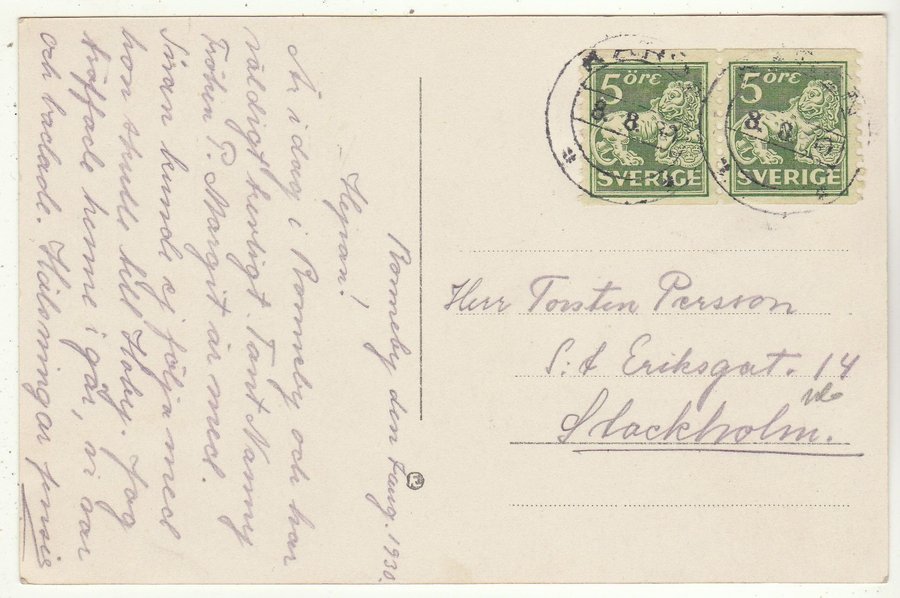 Ronneby den aug. 1930.
Hejsan!
Är i dag i Ronneby och har
väldigt herligt. Tant Nanny
Fröken P. Margit är med.
Siran kunde ej följa med
hon skulle till Hoby. Jag
träffade henne i går, vi var
och badade. Hälsningar
5 ÖRE
SVERIGE
5 ÖRE
SVERIGE
8. 8.
8. 8.
Herr Torsten Persson
S:t Eriksgat. 14
Stockholm.